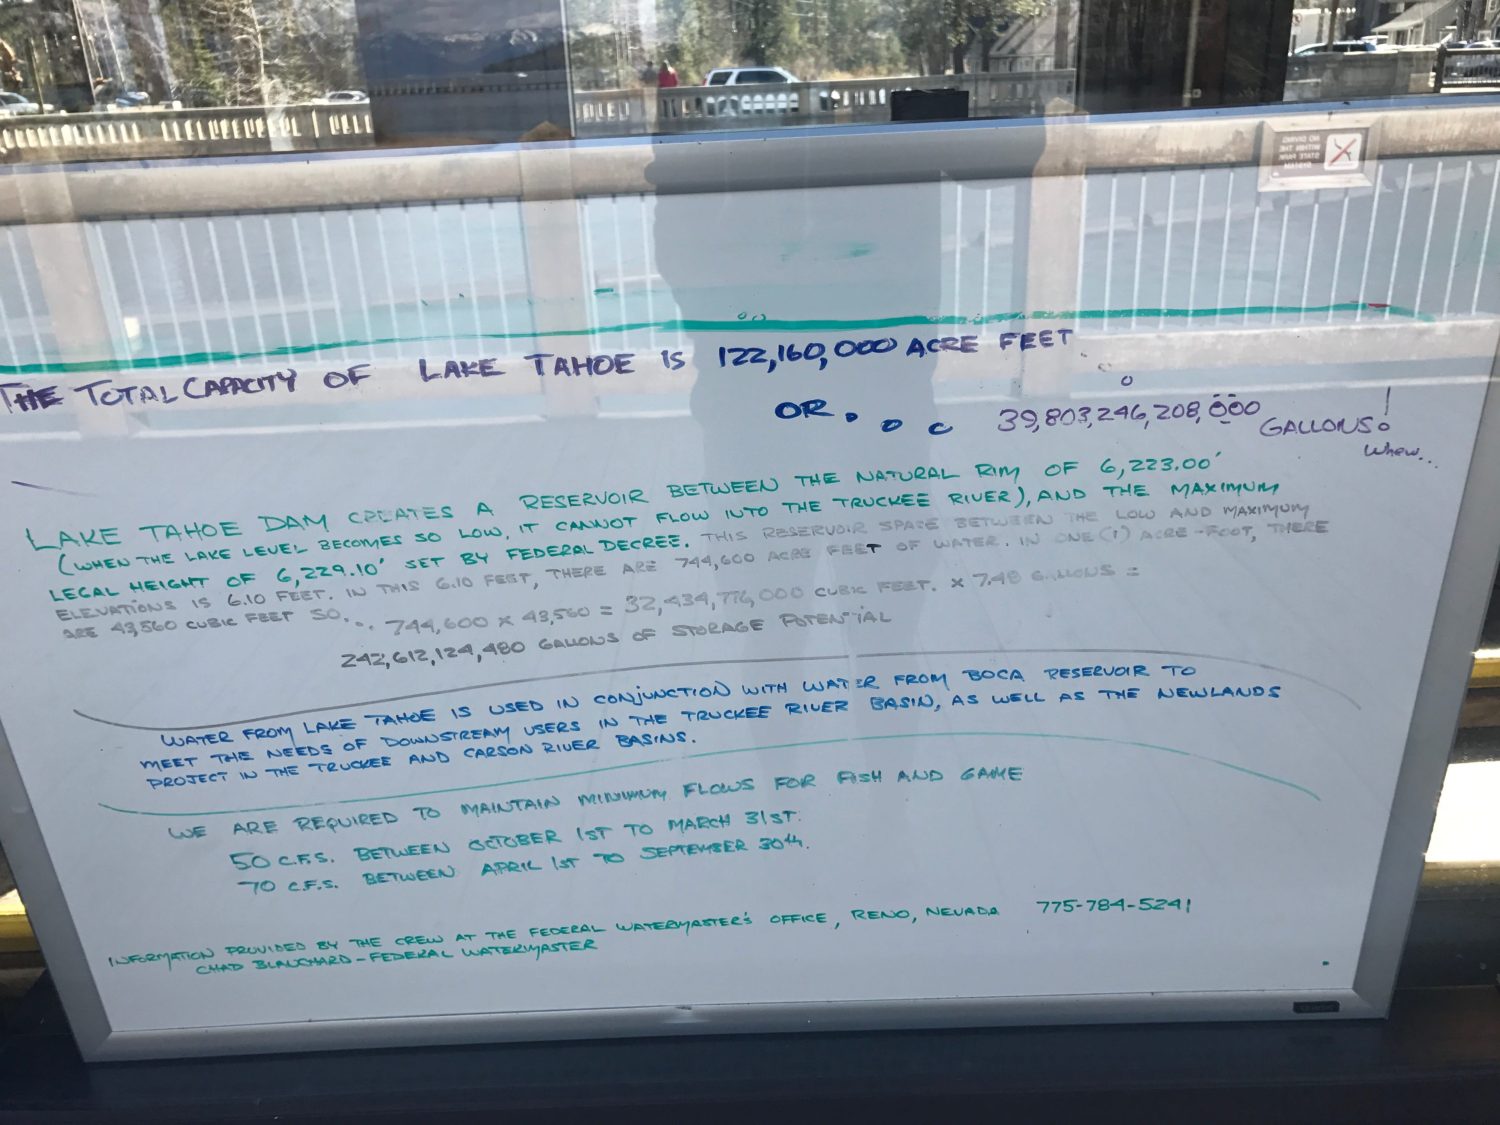 NO DIVING
WITHIN THE
STATE PARK
SYSTEM
THE TOTAL CAPACITY OF LAKE TAHOE IS 122,160,000 ACRE FEET
OR... 39,803,246,208,000 GALLONS!
Whew...
LAKE TAHOE DAM CREATES A RESERVOIR BETWEEN THE NATURAL RIM OF 6,223.00'
(WHEN THE LAKE LEVEL BECOMES SO LOW, IT CANNOT FLOW INTO THE TRUCKEE RIVER), AND THE MAXIMUM
LEGAL HEIGHT OF 6,229.10' SET BY FEDERAL DECREE. THIS RESERVOIR SPACE BETWEEN THE LOW AND MAXIMUM
ELEVATIONS IS 6.10 FEET. IN THIS 6.10 FEET, THERE ARE 744,600 ACRE FEET OF WATER. IN ONE (1) ACRE-FOOT, THERE
ARE 43,560 CUBIC FEET SO... 744,600 x 43,560 = 32,434,776,000 CUBIC FEET. x 7.48 GALLONS =
242,612,124,480 GALLONS OF STORAGE POTENTIAL
WATER FROM LAKE TAHOE IS USED IN CONJUNCTION WITH WATER FROM BOCA RESERVOIR TO
MEET THE NEEDS OF DOWNSTREAM USERS IN THE TRUCKEE RIVER BASIN, AS WELL AS THE NEWLANDS
PROJECT IN THE TRUCKEE AND CARSON RIVER BASINS.
WE ARE REQUIRED TO MAINTAIN MINIMUM FLOWS FOR FISH AND GAME
50 C.F.S. BETWEEN OCTOBER 1ST TO MARCH 31ST.
70 C.F.S. BETWEEN APRIL 1ST TO SEPTEMBER 30th.
INFORMATION PROVIDED BY THE CREW AT THE FEDERAL WATERMASTER'S OFFICE, RENO, NEVADA 775-784-5241
CHAD BLANCHARD - FEDERAL WATERMASTER